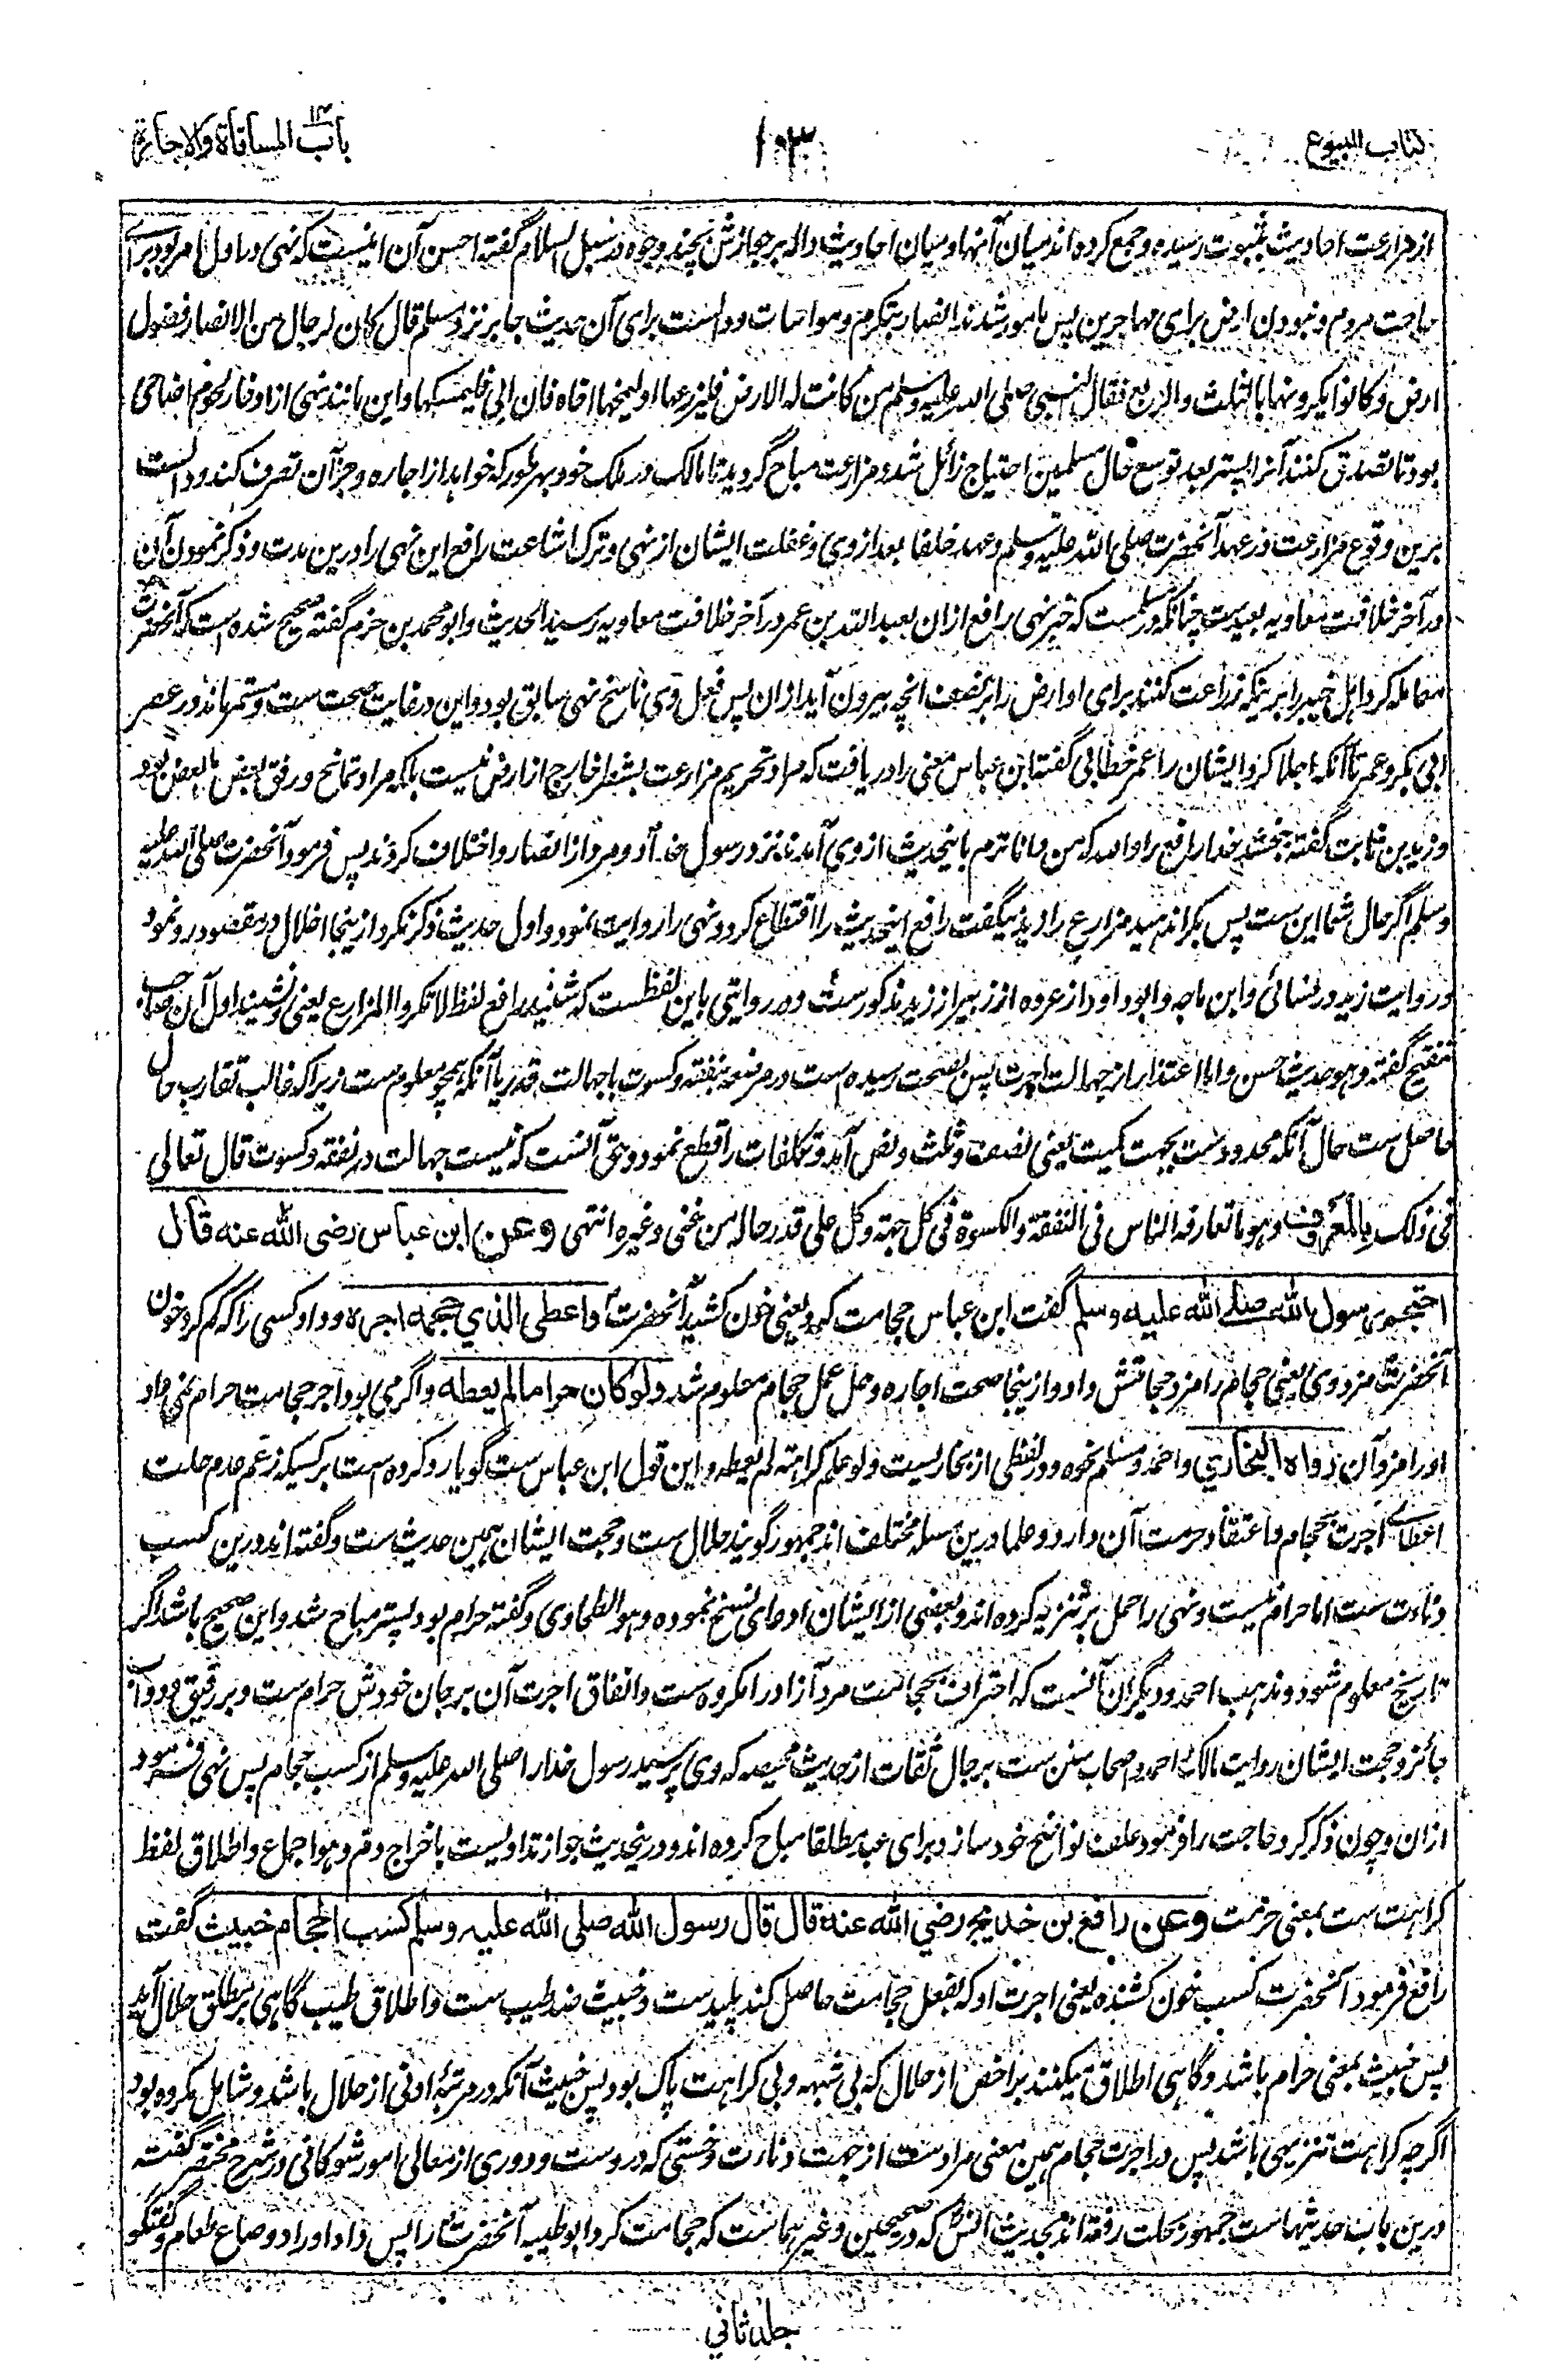 کتاب البیوع
۱۰۳
باب المساقاة والاجارة
از مزارعت احادیث بثبوت رسیده و جمع کرده اند میان آنها و میان احادیث داله بر جوازش بچند وجوه در سبل السلام گفته احسن آن اینست که نهی در اول امر بود برای
حاجت مردم و نبودن ارض برای مهاجرین پس مامور شدند انصار بتکرم و مواسات و دالست برای آن حدیث جابر نزد مسلم قال کان لرجال من الانصار فضول
ارض و کانوا یکرونها بالثلث والربع فقال النبی صلی الله علیه وسلم من کانت له الارض فلیزرعها او لیمنحها اخاه فان ابی فلیمسکها و این مانند نهی از ادخار لحوم اضاحی
بود تا تصدق کنند آنرا پستر بعد توسع حال مسلمین احتیاج زائل شد و مزارعت مباح گردید تا مالک در ملک خود بهر طور که خواهد از اجاره و جز آن تصرف کند و دالست
برین وقوع مزارعت در عهد آنحضرت صلی الله علیه وسلم و عهد خلفا بعد از وی و غفلت ایشان از نهی و ترک اشاعت رافع این نهی را درین مدت و ذکر نمودن آن
در آخر خلافت معاویه بعیدست چنانکه در مسلمست که خبر نهی رافع ازان بعبد الله بن عمر در آخر خلافت معاویه رسید الحدیث و ابو محمد بن حزم گفته صحیح شده است که آنحضرت
معامله کرد اهل خیبر را برینکه زراعت کنند برای او ارض را بر نصف آنچه بیرون آید ازان پس فعل وی ناسخ نهی سابق بود و این در غایت صحت ست و مستمر ماند در عصر
ابی بکر و عمر تا آنکه اجلا کرد ایشان را عمر خطابی گفته ابن عباس معنی را دریافت که مراد تحریم مزارعت بشطر خارج از ارض نیست بلکه مراد تمانح و رفق بعض بالبعض بود
و زید بن ثابت گفته بخشد خدا رافع را والله که من داناترم باینحدیث از وی آمدند نزد رسول خدا دو مرد از انصار و اختلاف کردند پس فرمود آنحضرت صلی الله علیه
وسلم اگر حال شما این ست پس بکرا ندهید مزارع را و زید میگفت رافع اینحدیث را اقتطاع کرد و نهی را روایت نمود و اول حدیث ذکر نکرد ازینجا اخلال در مقصود رو نمود
و روایت زید در نسائی و ابن ماجه و ابو داود از عروه ابن زبیر از زید مذکورست و در روایتی باین لفظست که شنید رافع لفظ لا تکروا المزارع یعنی و نشنید اول آن صاحب
تنقیح گفته و هو حدیث حسن و اما اعتذار از جهالت اجرت پس بصحت رسیده است در مرضعه بنفقه و کسوت با جهالت قدر یا آنکه همچو معلوم ست زیرا که غالب تقارب حال
حاصل ست حال آنکه محدودست بجهت کمیت یعنی نصف و ثلث و نص آمد و تکلفات را قطع نمود و حق آنست که نیست جهالت در نفقه و کسوت قال تعالی
فی ذلک بالمعروف و هو ما تعارفه الناس فی النفقة والکسوة فی کل جهة و کل علی قدر حاله من غنی و غیره انتهی وعن ابن عباس رضی الله عنه قال
احتجم رسول الله صلی الله علیه وسلم گفت ابن عباس حجامت کرد یعنی خون کشید آنحضرت واعطی الذي حجمه اجره و داد کسی را که گم کرد خون
آنحضرت مزد وی یعنی حجام را مزد حجامتش داد و ازینجا صحت اجاره و حل عمل حجام معلوم شد ولو کان حراما لم یعطه و اگر می بود اجر حجامت حرام نمی داد
او را مزد آن رواه البخاري و احمد و مسلم نحوه و در لفظی از بخاریست ولو علم کراهته لم یعطه و این قول ابن عباس ست گویا رد کرده است بر کسیکه زعم عدم حلت
اعطای اجرت بحجام و اعتقاد حرمت آن دارد و علما درین مسله مختلف اند جمهور گویند حلال ست و حجت ایشان همین حدیث ست و گفته اند درین کسب
دناءت ست اما حرام نیست و نهی را حمل بر تنزیه کرده اند و بعضی از ایشان ادعای نسخ نموده و هو الطحاوی و گفته حرام بود پستر مباح شد و این صحیح باشد اگر
تاریخ معلوم شود و مذهب احمد و دیگران آنست که احتراف بحجامت مرد آزاد را مکروه ست و انفاق اجرت آن بر جان خودش حرام ست و بر رقیق و دواب
جائز و حجت ایشان روایت مالک و احمد و اصحاب سنن ست برجال ثقات از حدیث محیصه که وی پرسید رسول خدا را صلی الله علیه وسلم از کسب حجام پس نهی فرمود
ازان و چون ذکر کرد حاجت را فرمود علف نواضح خود سازد و برای عبد مطلقا مباح کرده اند و درینحدیث جواز تداویست باخراج دم و هو اجماع و اطلاق لفظ
کراهت ست بمعنی حرمت وعن رافع بن خدیج رضي الله عنه قال قال رسول الله صلی الله علیه وسلم کسب الحجام خبیث گفت
رافع فرمود آنحضرت کسب خون کشنده یعنی اجرت او که بفعل حجامت حاصل کند پلیدست و خبیث ضد طیب ست و اطلاق طیب گاهی بر مطلق حلال آید
پس خبیث بمعنی حرام باشد و گاهی اطلاق میکنند بر اخص از حلال که بی شبهه و بی کراهت پاک بود پس خبیث آنکه در مرتبۀ ادنی از حلال باشد و شامل مکروه بود
اگرچه کراهت تنزیهی باشد پس در اجرت حجام همین معنی مرادست از جهت دنارت و خستی که در وست و دوری از معالی امور شوکانی در شرح مختصر گفته
درین باب حدیثهاست جمهور بحلت رفته اند بحدیث انس که در صحیحین و غیر هماست که حجامت کرد ابو طیبه آنحضرت را پس داد او را دو صاع طعام و گفتگو
جلد ثاني